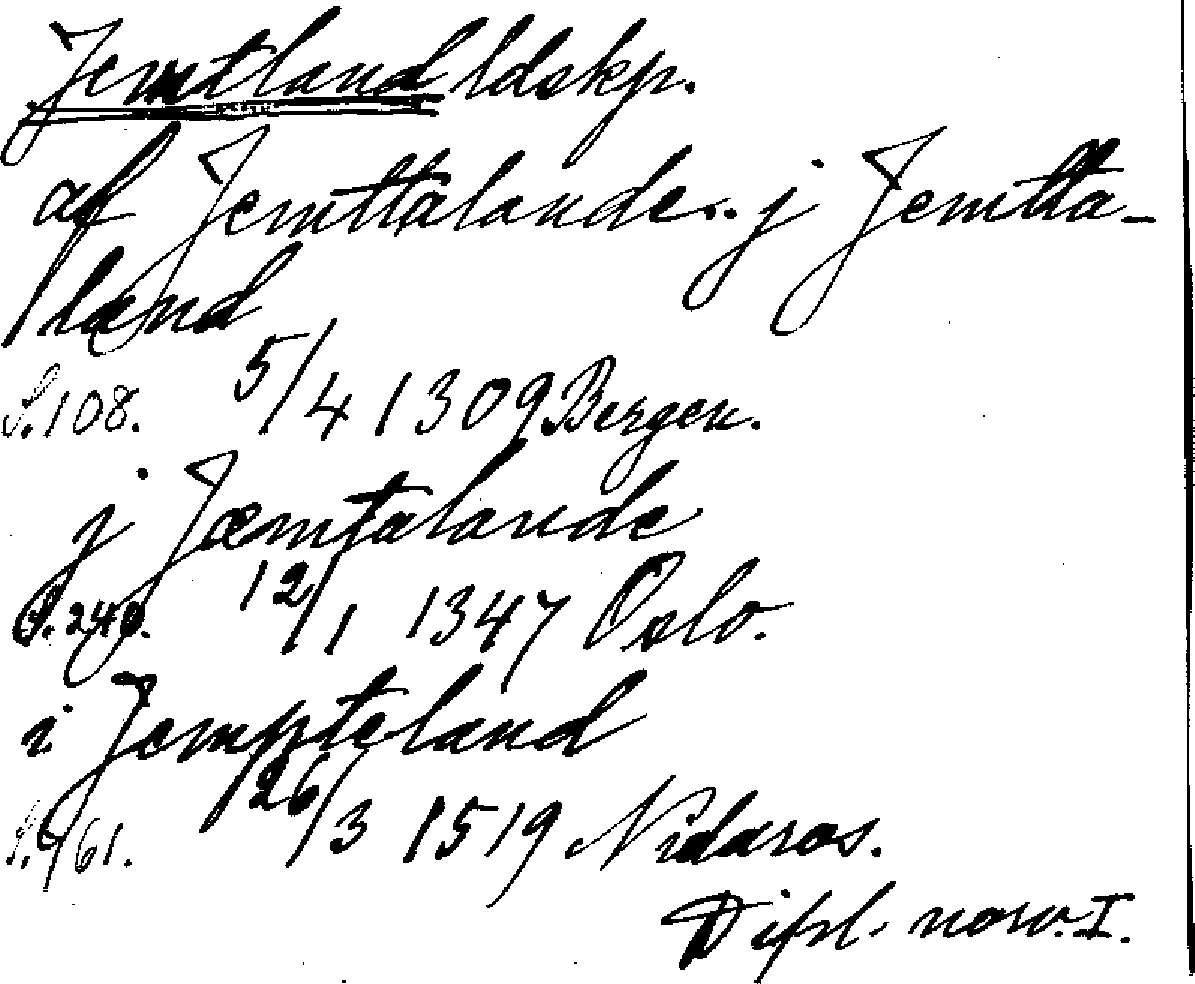 Jemtland ldskp.
af Jemttalande.. j Jemtta-
land
S. 108. 5/4 1309 Bergen.
j Jæmtalande
S. 240. 12/1 1347 Oslo.
i Jempteland
S. 761. 26/3 1519 Nidaros.
Dipl. norv. I.